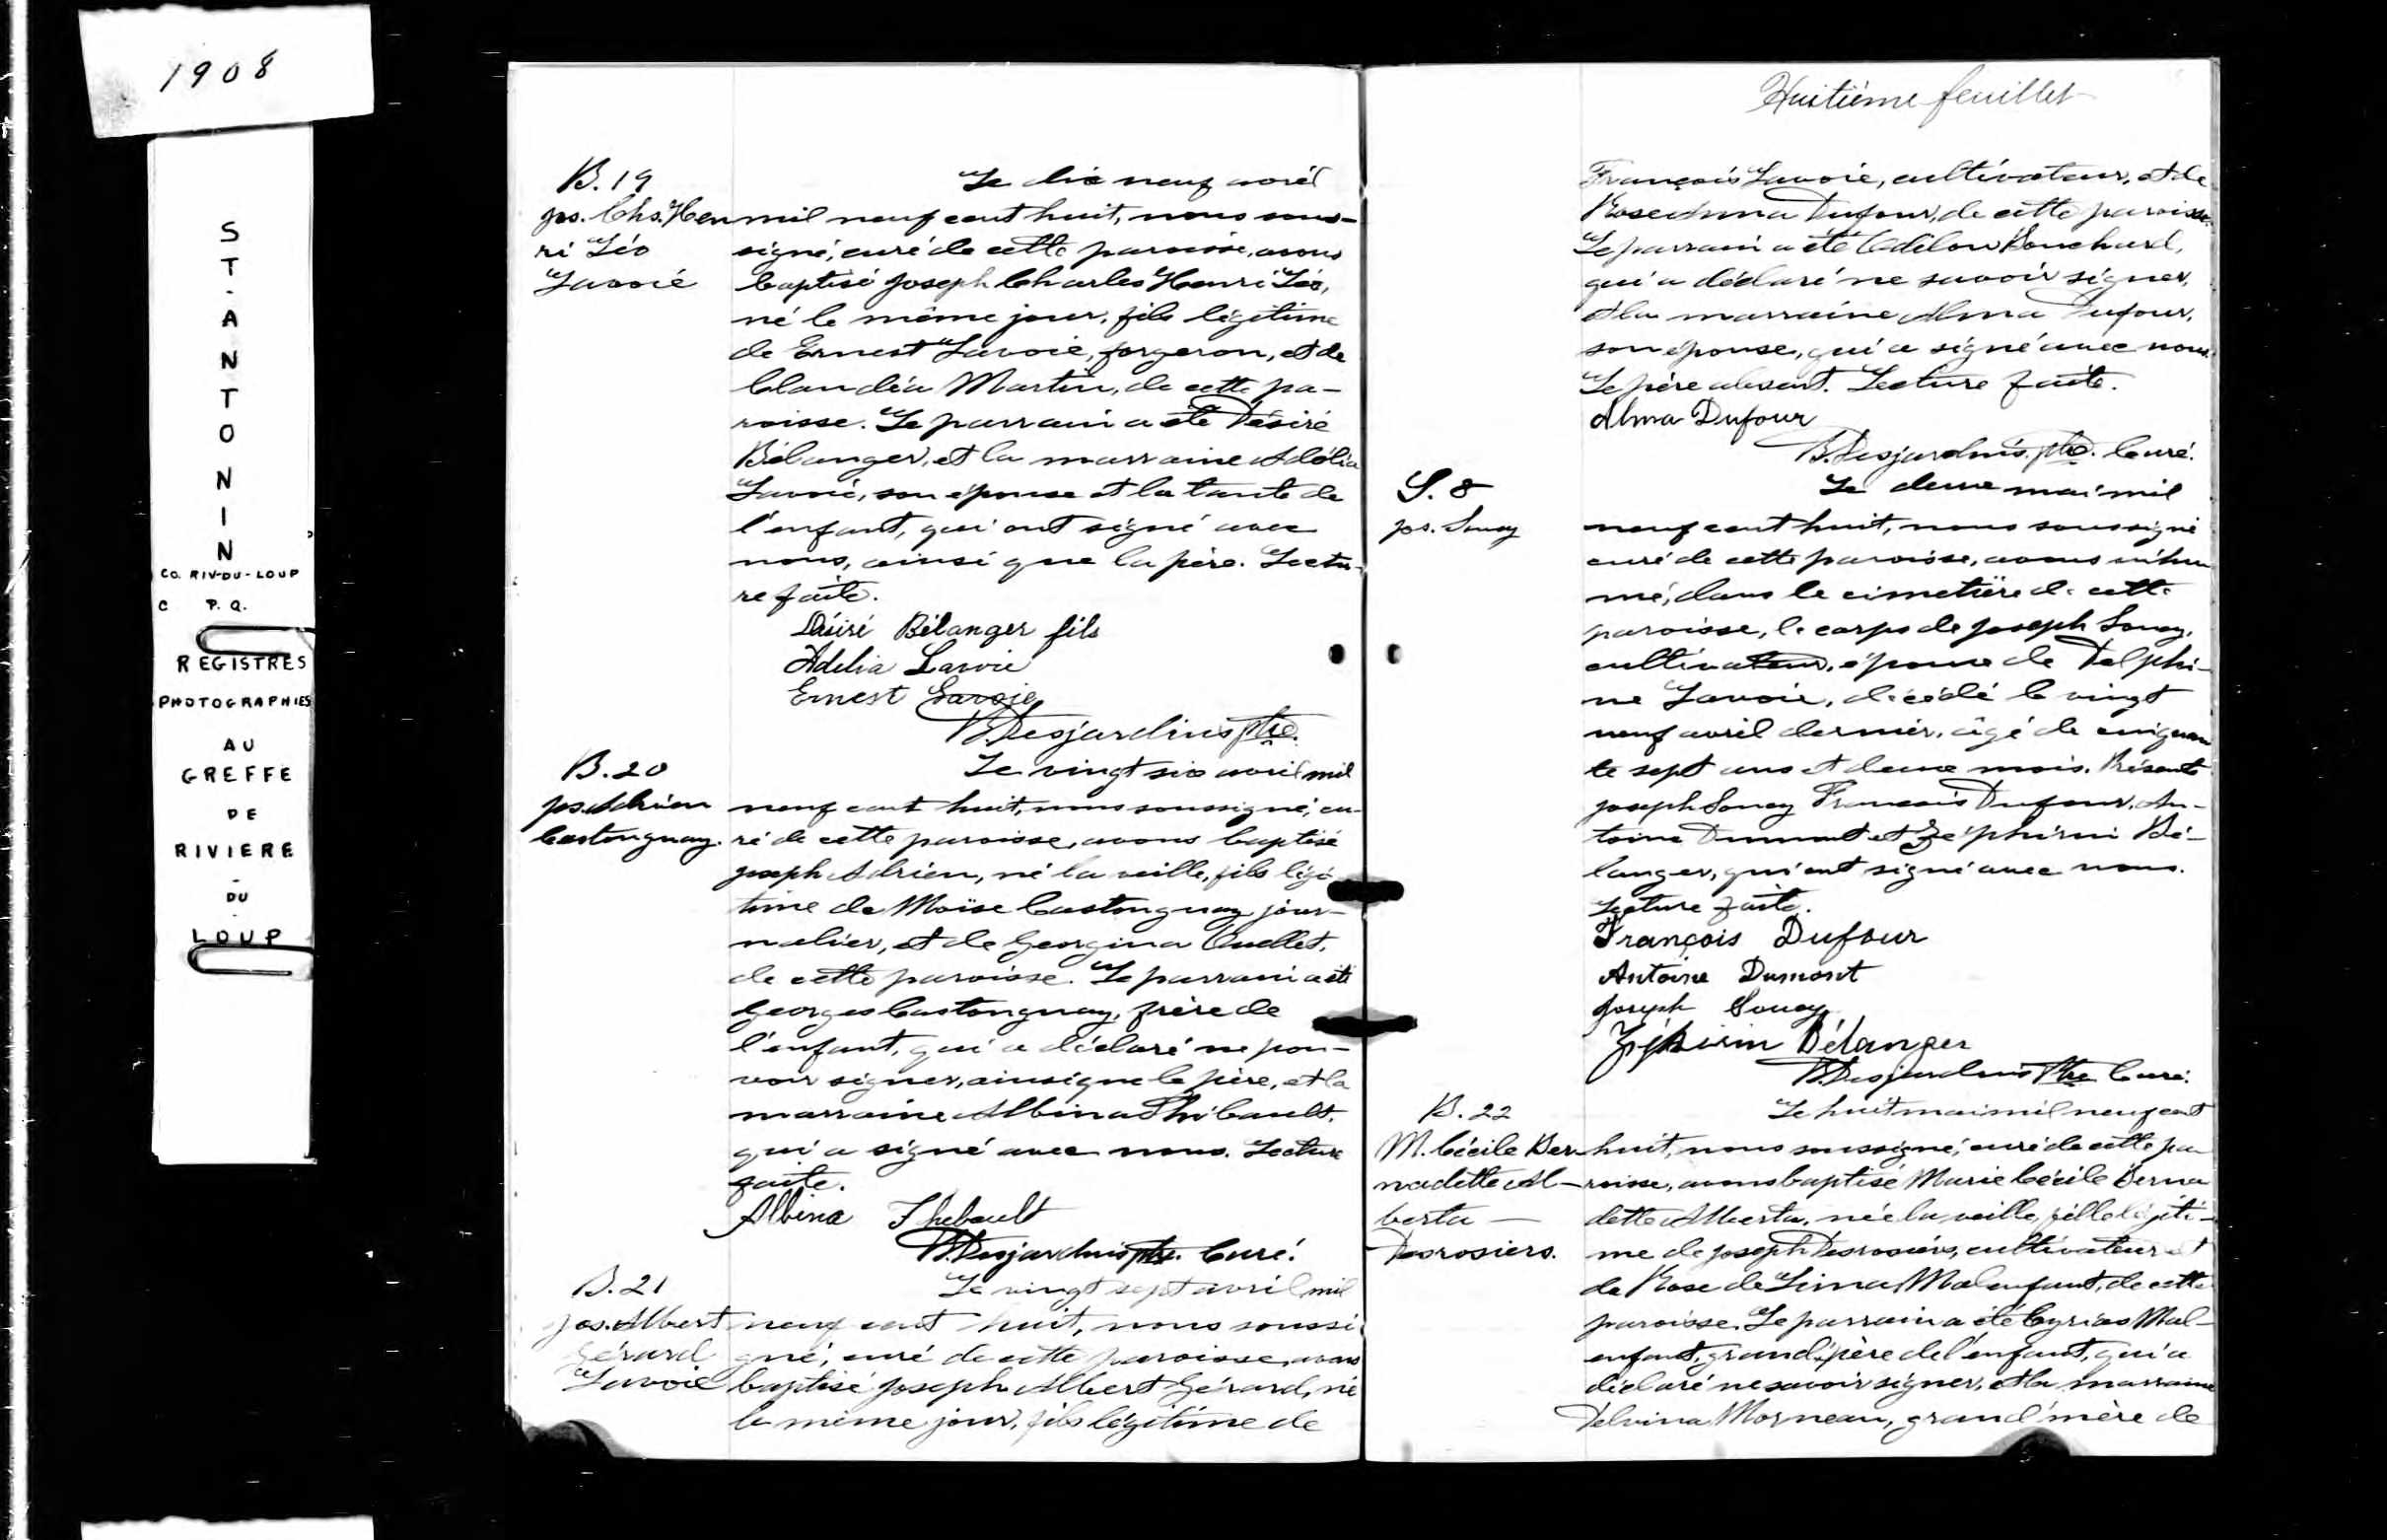 1908
ST-ANTONIN
CO. RIV-DU-LOUP
C P.Q.
REGISTRES
PHOTOGRAPHIES
AU
GREFFE
DE
RIVIERE
-
DU
-
LOUP
B.19
Jos. Chs. Hen
ri Léo
Lavoie
Le dix neuf avril
mil neuf cent huit, nous sous-
signé, curé de cette paroisse, avons
baptisé Joseph Charles Henri Léo,
né le même jour, fils légitime
de Ernest Lavoie, forgeron, et de
Claudéa Martin, de cette pa-
roisse. Le parrain a été Désiré
Bélanger, et la marraine Adélia
Lavoie, son épouse et la tante de
l'enfant, qui ont signé avec
nous, ainsi que le père. Lectu-
re faite.
Désiré Bélanger fils
Adelia Lavoie
Ernest Lavoie
B. Desjardins Ptre.
B.20
Jos. Adrien
Castonguay.
Le vingt six avril mil
neuf cent huit, nous soussigné, cu-
ré de cette paroisse, avons baptisé
Joseph Adrien, né la veille, fils légi-
time de Moïse Castonguay jour-
nalier, et de Georgina Ouellet,
de cette paroisse. Le parrain a été
Georges Castonguay, frère de
l'enfant, qui a déclaré ne pou-
voir signer, ainsi que le père, et la
marraine Albina Thibault,
qui a signé avec nous. Lecture
faite.
Albina Thebault
B. Desjardins Ptre. Curé.
B.21
Jos. Albert
Gérard
Lavoie
Le vingt sept avril mil
neuf cent huit, nous soussi
gné, curé de cette paroisse, avons
baptisé Joseph Albert Gérard, né
le même jour, fils légitime de
Huitième feuillet
François Lavoie, cultivateur, et de
Rose Anna Dufour, de cette paroisse.
Le parrain a été Odilon Bouchard,
qui a déclaré ne savoir signer,
et la marraine Alma Dufour,
son épouse, qui a signé avec nous.
Le père absent. Lecture faite.
Alma Dufour
B. Desjardins. Ptre. Curé.
S.8
Jos. Soucy
Le deux mai mil
neuf cent huit, nous soussigné
curé de cette paroisse, avons inhu
mé, dans le cimetière de cette
paroisse, le corps de Joseph Soucy,
cultivateur, époux de Delphi-
ne Lavoie, décédé le vingt
neuf avril dernier, âgé de cinquan
te sept ans et deux mois. Présents
Joseph Soucy François Dufour, An-
toine Dumont et Zéphirin Bé-
langer, qui ont signé avec nous.
Lecture faite.
François Dufour
Antoine Dumont
Joseph Soucy
Zéphirin Bélanger
B. Desjardins Ptre Curé.
B.22
M. Cécile Ber-
nadette Al-
berta —
Desrosiers.
Le huit mai mil neuf cent
huit, nous soussigné, curé de cette pa
roisse, avons baptisé Marie Cécile Berna
dette Alberta, née la veille, fille légiti-
me de Joseph Desrosiers, cultivateur et
de Rose de Lima Malenfant, de cette
paroisse. Le parrain a été Cyrias Mal-
enfant, grand'père de l'enfant, qui a
déclaré ne savoir signer, et la marraine
Delvina Morneau, grand'mère de